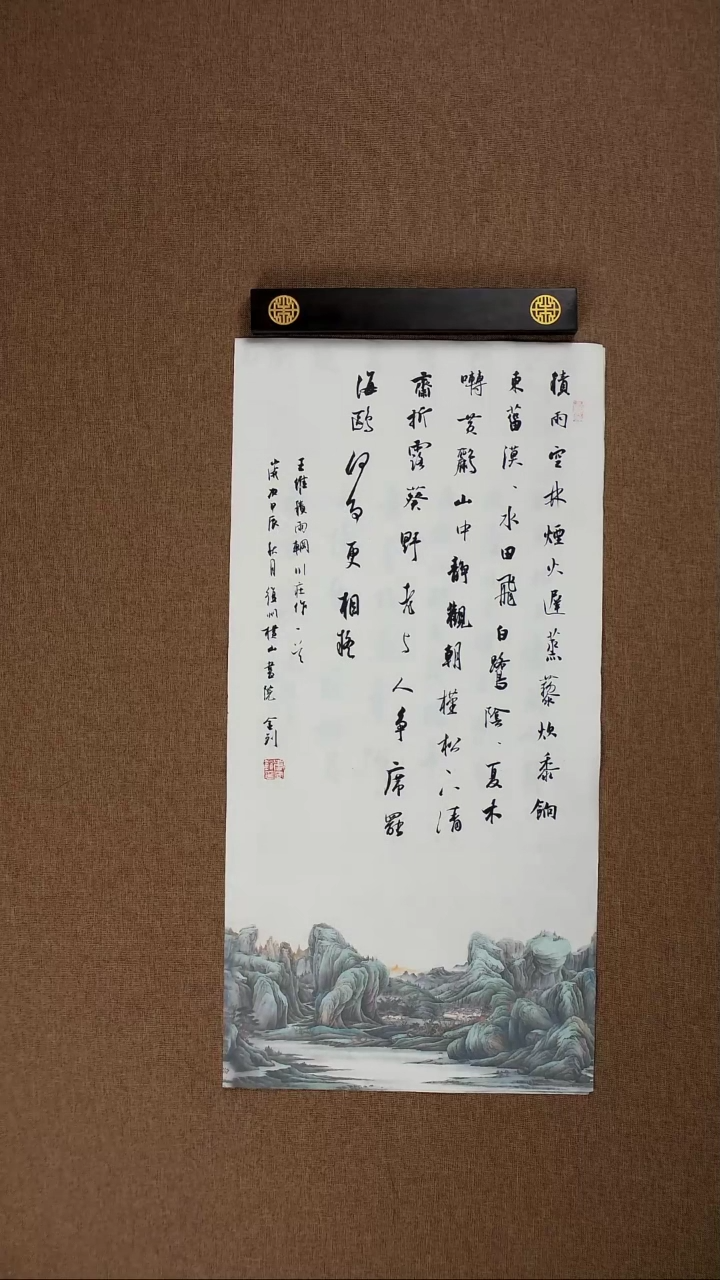 積雨空林煙火遲蒸藜炊黍餉
東菑漠、水田飛白鷺陰、夏木
囀黄鸝山中靜觀朝槿松下清
齋折露葵野老与人爭席罷
海鷗何事更相疑
王維積雨輞川莊作一首
歲次甲辰秋月山書院